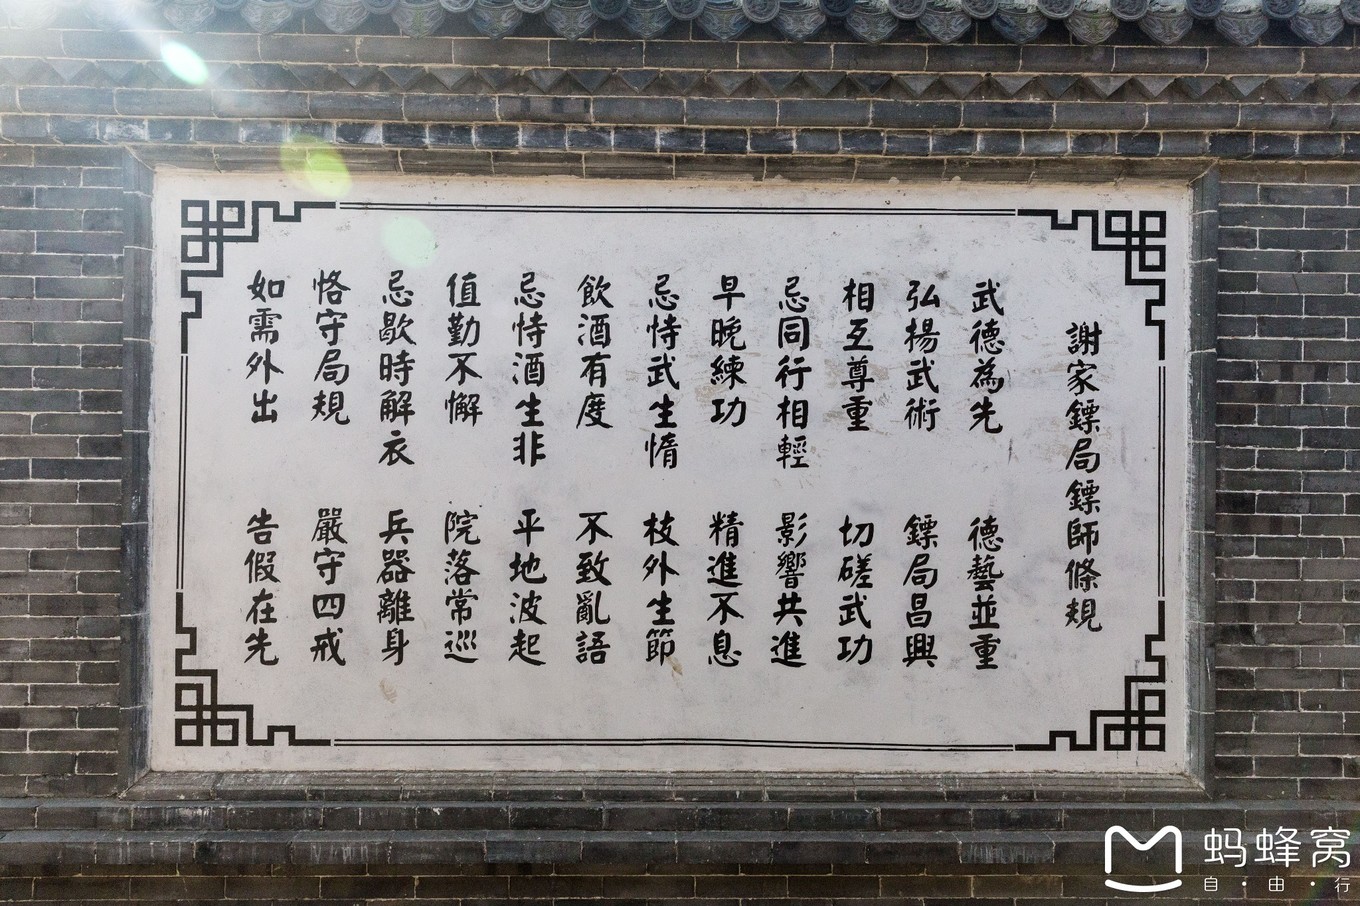 謝家鏢局鏢師條規
武德為先 德藝並重
弘揚武術 鏢局昌興
相互尊重 切磋武功
忌同行相輕 影響共進
早晚練功 精進不息
忌恃武生惰 枝外生節
飲酒有度 不致亂語
忌恃酒生非 平地波起
值勤不懈 院落常巡
忌歇時解衣 兵器離身
恪守局規 嚴守四戒
如需外出 告假在先
蚂蜂窝
自·由·行